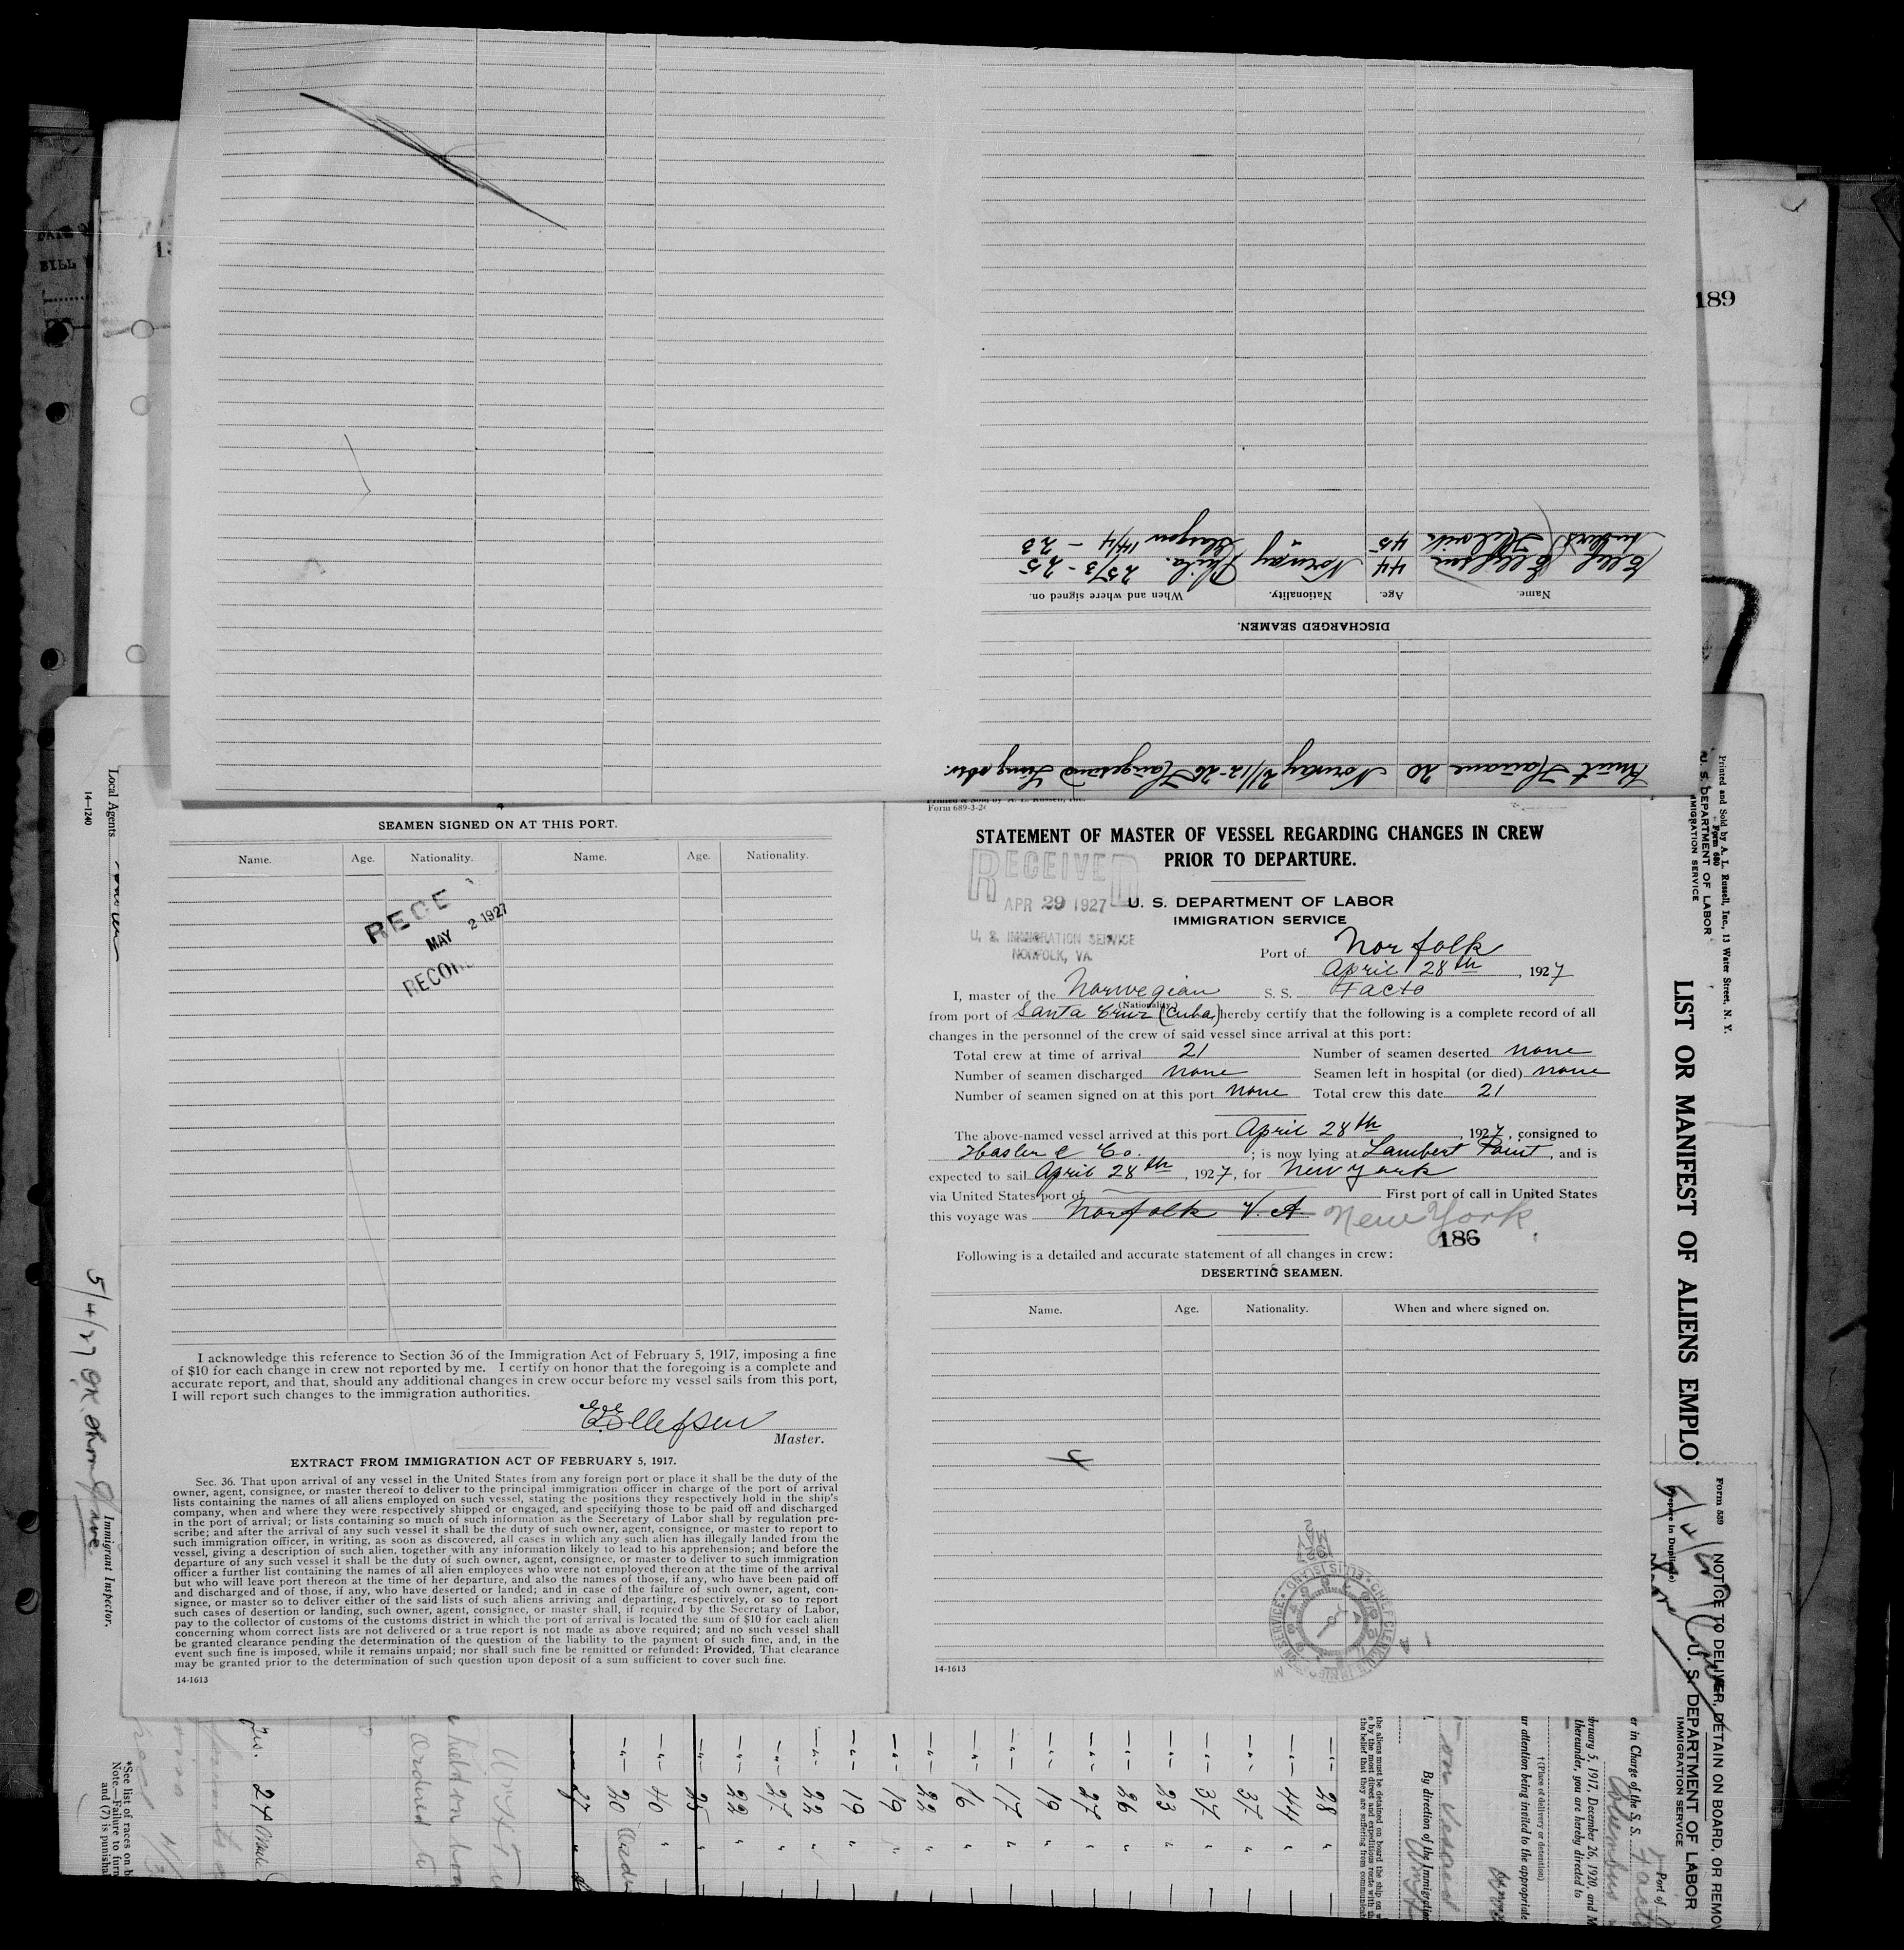 189
Knut Hauane 20 Norway 21/12-26 Haugesund
DISCHARGED SEAMEN.
Name. Age. Nationality. When and where signed on.
Ellef Ellefsen 44 Norway Phila. 25/3-25
Anders 45 14/4-23
Printed & Sold by A. L. Russell, Inc.
Form 689-3-2
SEAMEN SIGNED ON AT THIS PORT.
Name. Age. Nationality. Name. Age. Nationality.
RECE
MAY 2 1927
RECOR
I acknowledge this reference to Section 36 of the Immigration Act of February 5, 1917, imposing a fine
of $10 for each change in crew not reported by me. I certify on honor that the foregoing is a complete and
accurate report, and that, should any additional changes in crew occur before my vessel sails from this port,
I will report such changes to the immigration authorities.
E. Ellefsen
Master.
EXTRACT FROM IMMIGRATION ACT OF FEBRUARY 5, 1917.
Sec. 36. That upon arrival of any vessel in the United States from any foreign port or place it shall be the duty of the
owner, agent, consignee, or master thereof to deliver to the principal immigration officer in charge of the port of arrival
lists containing the names of all aliens employed on such vessel, stating the positions they respectively hold in the ship's
company, when and where they were respectively shipped or engaged, and specifying those to be paid off and discharged
in the port of arrival; or lists containing so much of such information as the Secretary of Labor shall by regulation pre-
scribe; and after the arrival of any such vessel it shall be the duty of such owner, agent, consignee, or master to report to
such immigration officer, in writing, as soon as discovered, all cases in which any such alien has illegally landed from the
vessel, giving a description of such alien, together with any information likely to lead to his apprehension; and before the
departure of any such vessel it shall be the duty of such owner, agent, consignee, or master to deliver to such immigration
officer a further list containing the names of all alien employees who were not employed thereon at the time of the arrival
but who will leave port thereon at the time of her departure, and also the names of those, if any, who have been paid off
and discharged and of those, if any, who have deserted or landed; and in case of the failure of such owner, agent, con-
signee, or master so to deliver either of the said lists of such aliens arriving and departing, respectively, or so to report
such cases of desertion or landing, such owner, agent, consignee, or master shall, if required by the Secretary of Labor,
pay to the collector of customs of the customs district in which the port of arrival is located the sum of $10 for each alien
concerning whom correct lists are not delivered or a true report is not made as above required; and no such vessel shall
be granted clearance pending the determination of the question of the liability to the payment of such fine, and, in the
event such fine is imposed, while it remains unpaid; nor shall such fine be remitted or refunded: Provided, That clearance
may be granted prior to the determination of such question upon deposit of a sum sufficient to cover such fine.
14-1613
STATEMENT OF MASTER OF VESSEL REGARDING CHANGES IN CREW
PRIOR TO DEPARTURE.
RECEIVED
APR 29 1927
U. S. IMMIGRATION SERVICE
NORFOLK, VA.
U. S. DEPARTMENT OF LABOR
IMMIGRATION SERVICE
Port of Norfolk
April 28th, 1927
I, master of the Norwegian S. S. Facto
(Nationality)
from port of Santa Cruz (Cuba) hereby certify that the following is a complete record of all
changes in the personnel of the crew of said vessel since arrival at this port:
Total crew at time of arrival 21 Number of seamen deserted none
Number of seamen discharged none Seamen left in hospital (or died) none
Number of seamen signed on at this port none Total crew this date 21
The above-named vessel arrived at this port April 28th, 1927, consigned to
Hasler & Co.; is now lying at Lambert Point, and is
expected to sail April 28th, 1927, for New York
via United States port of First port of call in United States
this voyage was Norfolk V.A. New York
186
Following is a detailed and accurate statement of all changes in crew:
DESERTING SEAMEN.
Name. Age. Nationality. When and where signed on.
MAY 2
1927
14-1613
Local Agents
14-1240
5/4/27 OK
Immigrant Inspector.
*See list of races on b
Note.—Failure to furn
and (7) is punisha
Printed and Sold by A. L. Russell, Inc., 13 Water Street, N. Y.
Form 680
U. S. DEPARTMENT OF LABOR
IMMIGRATION SERVICE
LIST OR MANIFEST OF ALIENS EMPLO
Form 559
(Prepare in Duplicate)
NOTICE TO DELIVER, DETAIN ON BOARD, OR REMOV
U. S. DEPARTMENT OF LABOR
IMMIGRATION SERVICE
Port of
er in Charge of the S. S. Facto
Columbus
bruary 5, 1917, December 26, 1920, and M
thereunder, you are hereby directed to
†(Place of delivery or detention)
ur attention being invited to the appropriate
on vessel
By direction of the Immigration
the aliens must be detained on board the ship on w
e by the most direct and expeditious route with th
the belief that they are suffering from communicab
28
44
37
37
23
26
27
19
17
16
22
19
19
22
27
22
25
40
20
27
held on boa
Ordered to